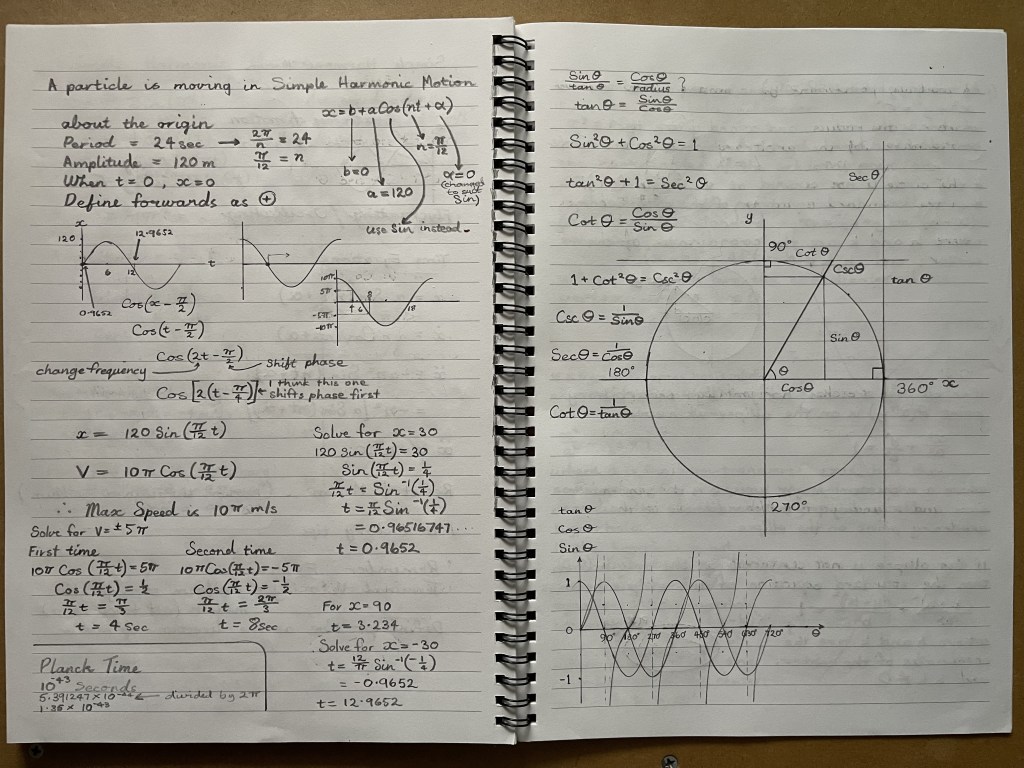 A particle is moving in Simple Harmonic Motion
about the origin
x = b + a Cos(nt + α)
Period = 24 sec → 2π/n = 24
Amplitude = 120 m
π/12 = n
When t = 0, x = 0
Define forwards as (+)
b = 0
a = 120
n = π/12
α = 0
(changes
to suit
Sin)
use Sin instead.
x
120
12.9652
6
12
t
0.9652
10π
5π
-5π
-10π
18
Cos(x - π/2)
Cos(t - π/2)
Cos(2t - π/2)
shift phase
change frequency
Cos[2(t - π/4)]
I think this one
shifts phase first
x = 120 Sin(π/12 t)
V = 10π Cos(π/12 t)
∴ Max Speed is 10π m/s
Solve for V = ±5π
First time
10π Cos(π/12 t) = 5π
Cos(π/12 t) = 1/2
π/12 t = π/3
t = 4 sec
Second time
10π Cos(π/12 t) = -5π
Cos(π/12 t) = -1/2
π/12 t = 2π/3
t = 8 sec
Solve for x = 30
120 Sin(π/12 t) = 30
Sin(π/12 t) = 1/4
π/12 t = Sin⁻¹(1/4)
t = π/12 Sin⁻¹(1/4)
= 0.96516747...
t = 0.9652
For x = 90
t = 3.234
Solve for x = -30
t = 12/π Sin⁻¹(-1/4)
= -0.9652
t = 12.9652
Planck Time
10⁻⁴³ Seconds
divided by 2π
1.35 × 10⁻⁴³
Sin θ/tan θ = Cos θ/radius ?
tan θ = Sin θ/Cos θ
Sin²θ + Cos²θ = 1
tan²θ + 1 = Sec²θ
Cot θ = Cos θ/Sin θ
1 + Cot²θ = Csc²θ
Csc θ = 1/Sin θ
Sec θ = 1/Cos θ
Cot θ = 1/tan θ
Sec θ
y
90°
Cot θ
Csc θ
tan θ
Sin θ
θ
Cos θ
180°
360°
x
270°
tan θ
Cos θ
Sin θ
1
0
90° 180° 270° 360° 450° 540° 630° 720°
θ
-1